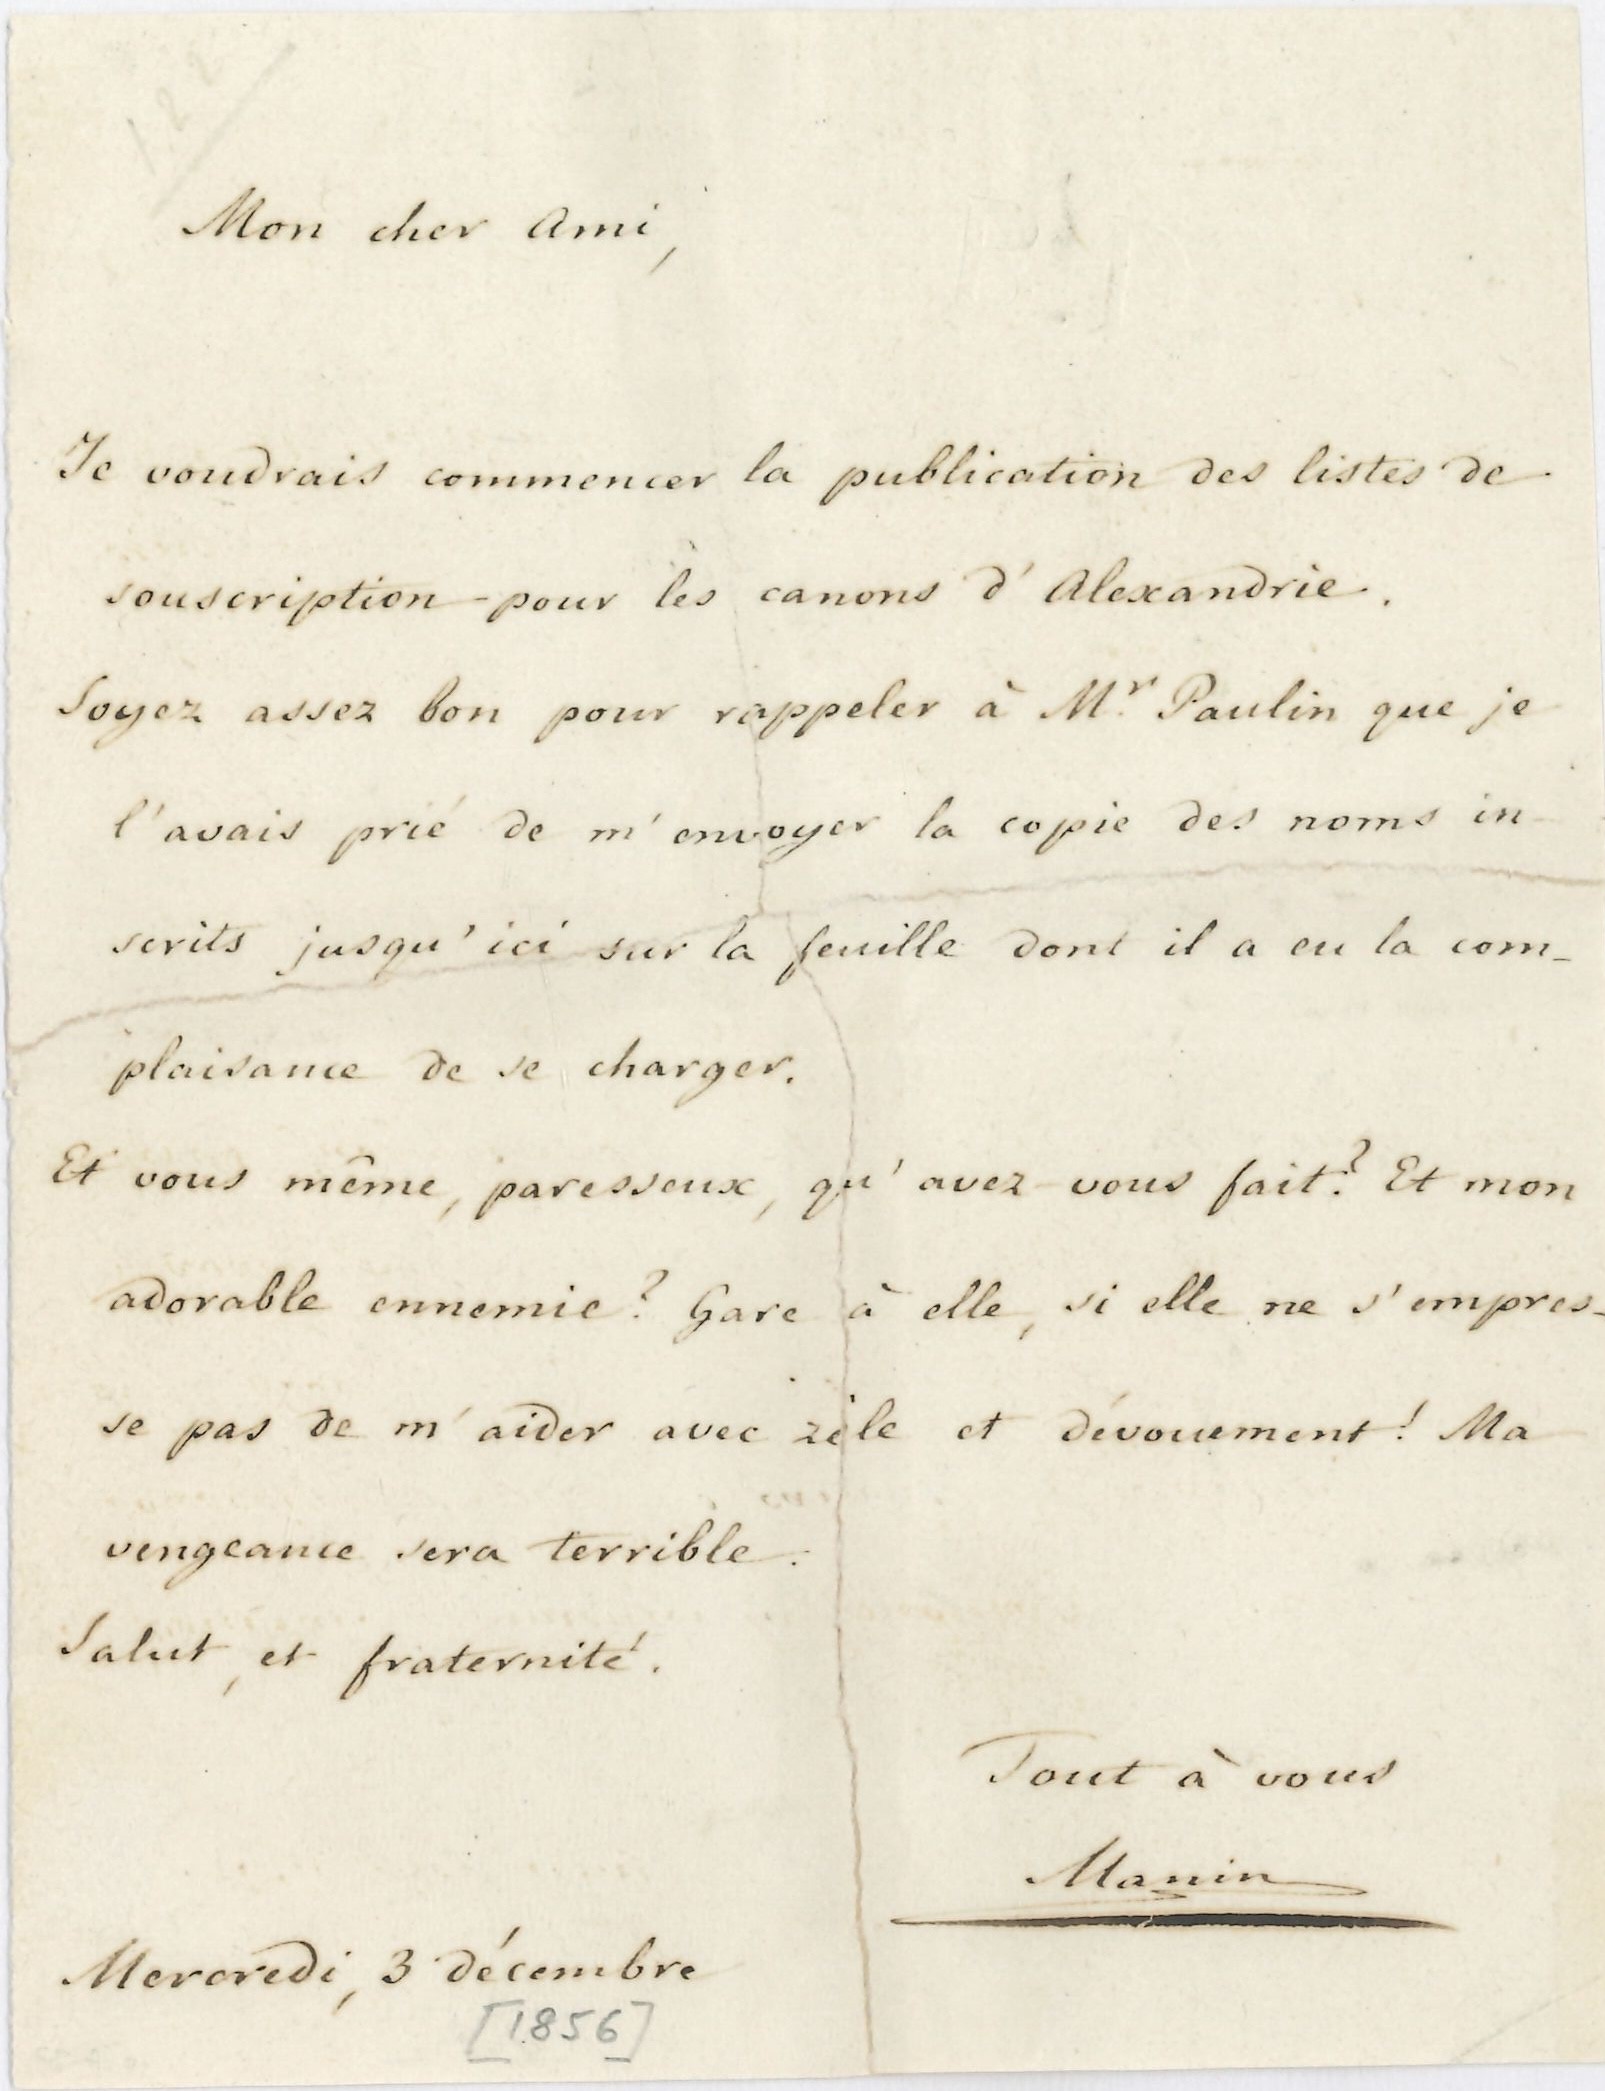 122
Mon cher Ami,
Je voudrais commencer la publication des listes de
souscription pour les canons d'Alexandrie.
Soyez assez bon pour rappeler à Mr. Paulin que je
l'avais prié de m'envoyer la copie des noms in-
scrits jusqu'ici sur la feuille dont il a eu la com-
plaisance de se charger.
Et vous même, paresseux, qu'avez-vous fait? Et mon
adorable ennemie? Gare à elle, si elle ne s'empres-
se pas de m'aider avec zèle et dévouement! Ma
vengeance sera terrible.
Salut, et fraternité.
Tout à vous
Manin
Mercredi, 3 décembre
[1856]